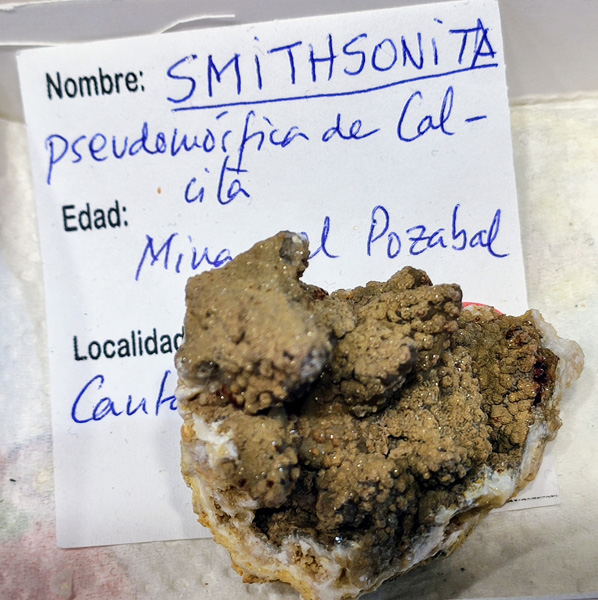 Nombre: SMITHSONITA
pseudomórfica de Cal-
cita
Edad:
Mina el Pozabal
Localidad
Cant